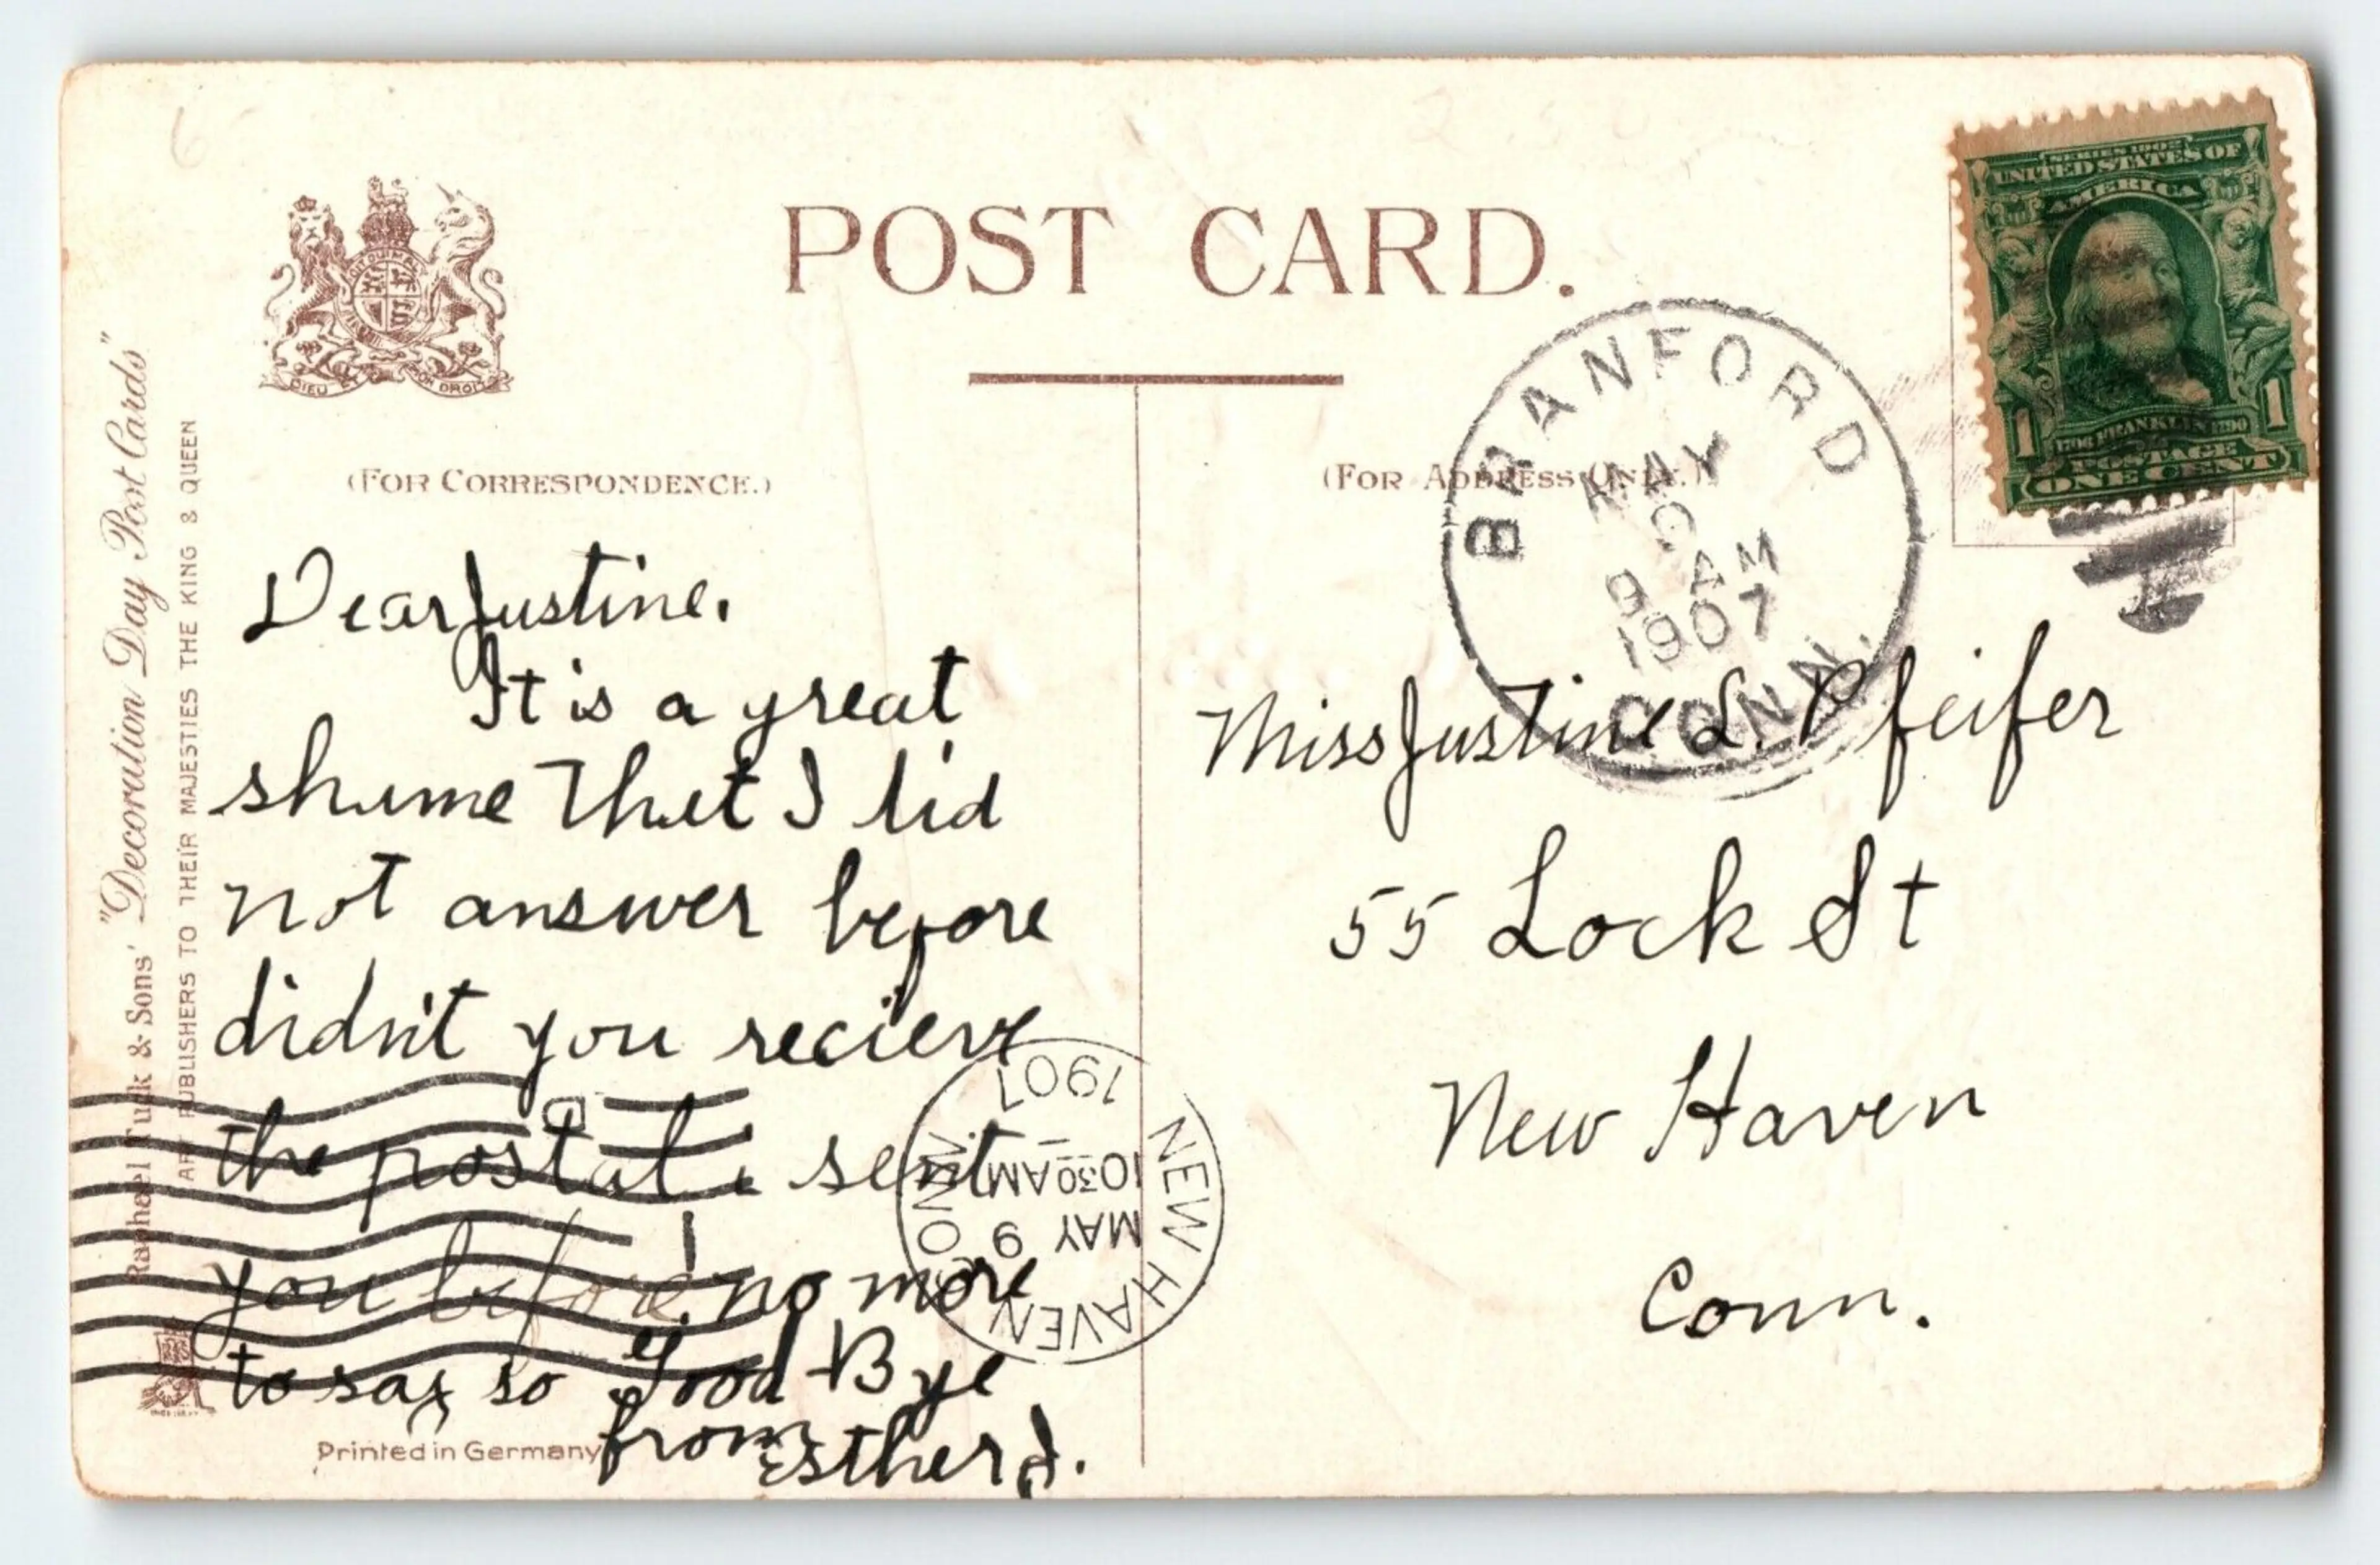 POST CARD.
(FOR CORRESPONDENCE.)
(FOR ADDRESS ONLY.)
Raphael Tuck & Sons' "Decoration Day Post Cards"
ART PUBLISHERS TO THEIR MAJESTIES THE KING & QUEEN
DIEU ET MON DROIT
Dear Justine.
It is a great
shame that I did
not answer before
didn't you recieve
the postal i sent
you before! no more
to say so Good Bye
from
Esther J.
Printed in Germany
SERIES 1902
UNITED STATES OF
AMERICA
1706 FRANKLIN 1790
POSTAGE
1 1
ONE CENT
BRANFORD
MAY
9
9 AM
1907
CONN.
Miss Justine L. Pfeifer
55 Lock St
New Haven
Conn.
NEW HAVEN CONN.
MAY 9
10 30 AM
1907
D
1